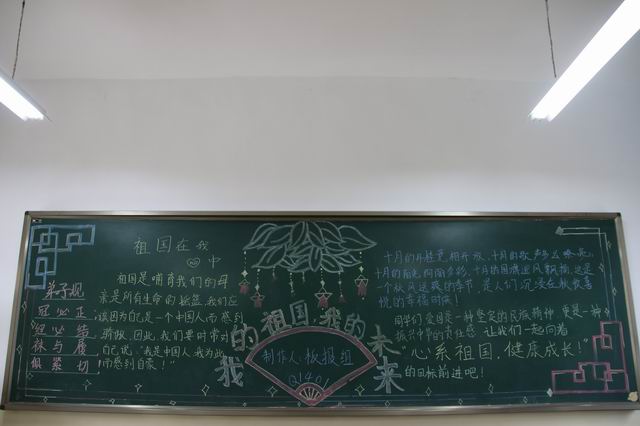 弟子规
冠必正
纽必结
袜与履
俱紧切
祖国在我
心中
祖国是哺育我们的母
亲是所有生命的摇篮,我们应
该因为自己是一个中国人而感到
骄傲。因此,我们要时常对
自己说:"我是中国人,我为此
而感到自豪!"
我的祖国,我的未来
制作人:板报组
Q1401
十月的
十月的
一个秋风送爽的季节,是人们沉浸在秋收喜
悦的幸福时候!
同学们爱国是一种坚定的民族精神 更是一种
振兴中华的责任感 让我们一起向着
"心系祖国,健康成长!"
的目标前进吧!